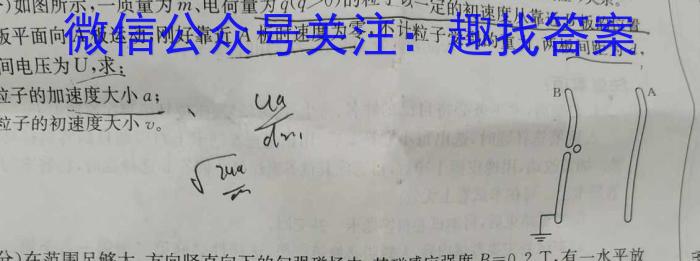 )如图所示,一质量为m、电荷量为q(q>0)的粒子以一定的初速度从靠
板平面向 板运动,刚好靠近A板时速度为零,不计粒子受到的重力,两板间距
微信公众号关注:趣找答案
间电压为U,求:
粒子的加速度大小a;
粒子的初速度大小v。
B
A
分)在范围足够大、方向竖直向下的匀强磁场中,其磁感应强度B=0.2T,有一水平放